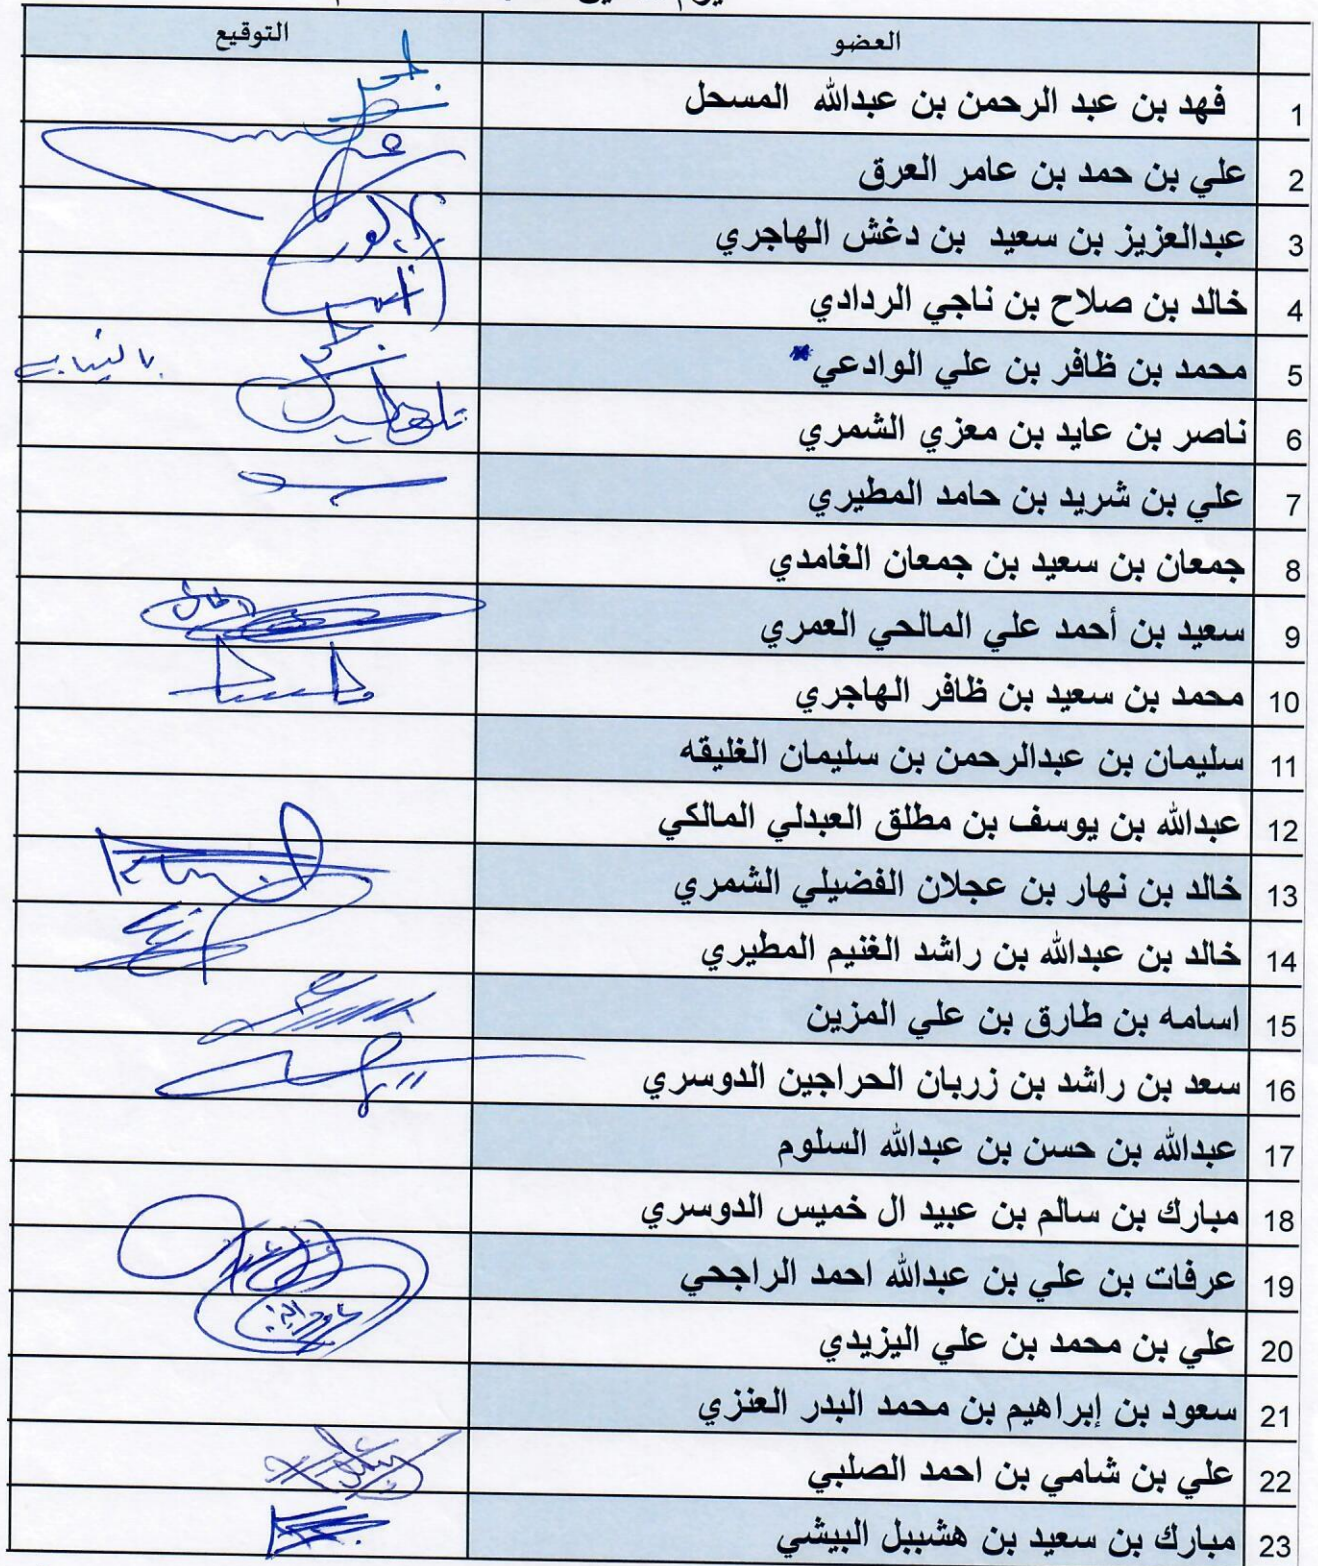 التوقيع العضو
1 فهد بن عبد الرحمن بن عبدالله المسحل
2 علي بن حمد بن عامر العرق
3 عبدالعزيز بن سعيد بن دغش الهاجري
4 خالد بن صلاح بن ناجي الردادي
5 محمد بن ظافر بن علي الوادعي* بالنيابة
6 ناصر بن عايد بن معزي الشمري
7 علي بن شريد بن حامد المطيري
8 جمعان بن سعيد بن جمعان الغامدي
9 سعيد بن أحمد علي المالحي العمري
10 محمد بن سعيد بن ظافر الهاجري
11 سليمان بن عبدالرحمن بن سليمان الغليقه
12 عبدالله بن يوسف بن مطلق العبدلي المالكي
13 خالد بن نهار بن عجلان الفضيلي الشمري
14 خالد بن عبدالله بن راشد الغنيم المطيري
15 اسامه بن طارق بن علي المزين
16 سعد بن راشد بن زربان الحراجين الدوسري
17 عبدالله بن حسن بن عبدالله السلوم
18 مبارك بن سالم بن عبيد ال خميس الدوسري
19 عرفات بن علي بن عبدالله احمد الراجحي
20 علي بن محمد بن علي اليزيدي
21 سعود بن إبراهيم بن محمد البدر العنزي
22 علي بن شامي بن احمد الصلبي
23 مبارك بن سعيد بن هشبيل البيشي